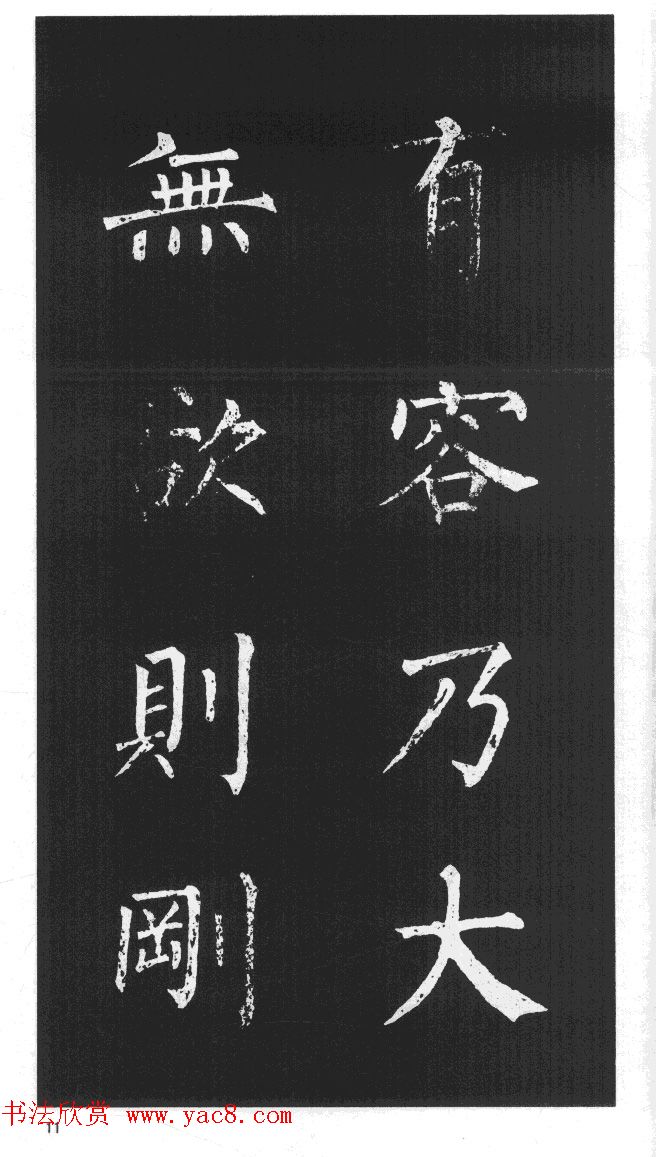 有容乃大
無欲則剛
书法欣赏 www.yac8.com
11